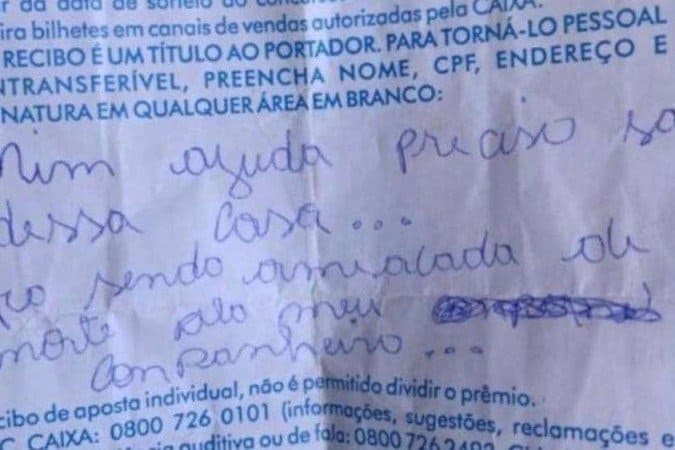 er da data de sorteio do concurso
ira bilhetes em canais de vendas autorizadas pela CAIXA.
RECIBO É UM TÍTULO AO PORTADOR. PARA TORNÁ-LO PESSOAL
NTRANSFERÍVEL, PREENCHA NOME, CPF, ENDEREÇO E
NATURA EM QUALQUER ÁREA EM BRANCO:
mim ajuda preciso sa
dessa casa...
sendo amiaçada de
morte pelo meu
companheiro...
cibo de aposta individual, não é permitido dividir o prêmio.
C CAIXA: 0800 726 0101 (informações, sugestões, reclamações e
auditiva ou de fala: 0800 726 2492